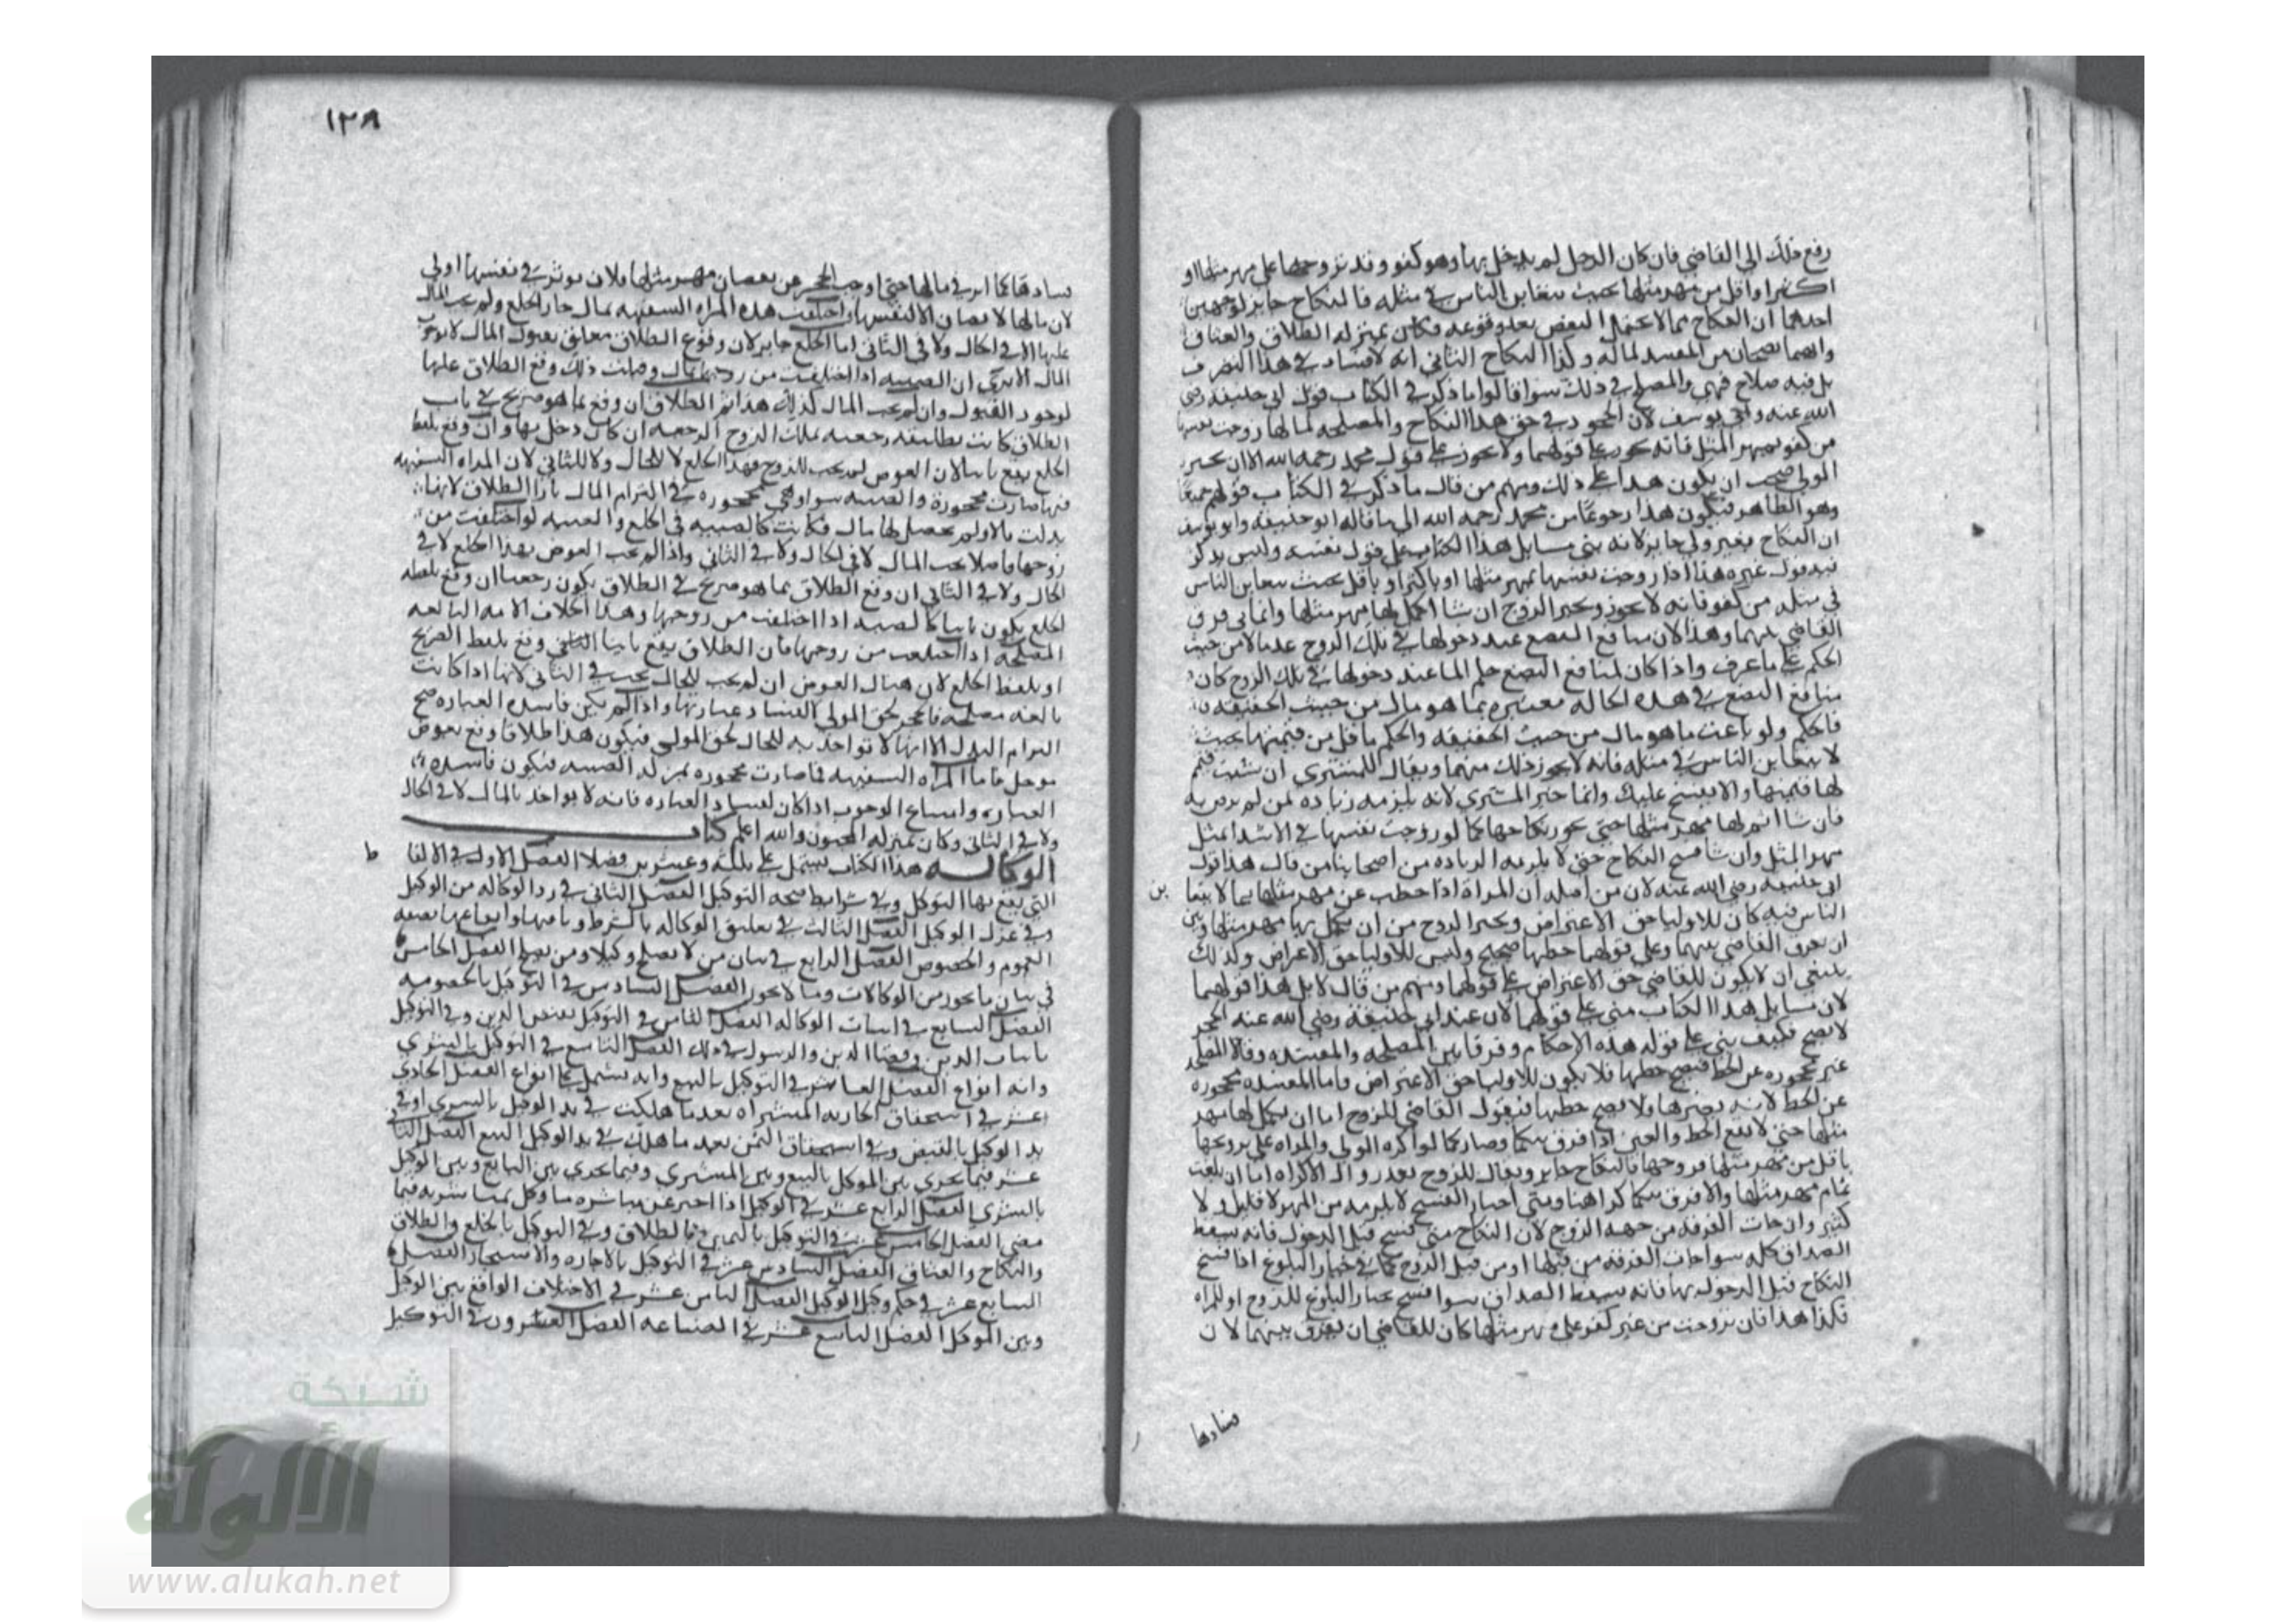 رفع ذلك الى القاضي فان كان الرجل لم يدخل بها وهو كفو وقد تزوجها على مهر مثلها او
اكثر او اقل من مهر مثلها بحيث يتغابن الناس في مثله فالنكاح جايز لوجهين
احدهما ان النكاح مما لا يحتمل النقض بعد وقوعه فكان بمنزله الطلاق والعتاق
وانهما يصحان من المفسد لماله وكذا النكاح الثاني انه لا فساد في هذا التصرف
بل فيه صلاح فهي والمصلح في ذلك سوا قالوا ما ذكر في الكتاب قول ابي حنيفه رضي
الله عنه وابي يوسف لان المحجور في حق هذا النكاح والمصلحه لمالها زوجت نفسها
من كفو بمهر المثل فانه يجوز على قولهما ولا يجوز على قول محمد رحمه الله الا ان يجيز
المولى فيجب ان يكون هذا على ذلك ومنهم من قال ما ذكر في الكتاب قولهم جميعا
وهو الظاهر فيكون هذا رجوعا من محمد رحمه الله الى ما قاله ابو حنيفه وابو يوسف
ان النكاح بغير ولي جايز لانه بنى مسايل هذا الكتاب على قول نفسه وليس يذكر
فيه قول غيره هذا اذا زوجت نفسها بمهر مثلها او باكثر او باقل بحيث يتغابن الناس
في مثله من كفو فانه لا يجوز ويخير الزوج ان شا اكمل لها مهر مثلها وان ابى فرق
القاضي بينهما وهذا لان منافع البضع عند دخولها في ملك الزوج عدمالا من حيث
الحكم على ما عرف واذا كان لمنافع البضع حكم المال عند دخولها في ملك الزوج كان
منافع البضع في هذه الحاله معتبره بما هو مال من حيث الحقيقه
فالحكم ولو باعت ما هو مال من حيث الحقيقه والحكم باقل من قيمتها بحيث
لا يتغابن الناس في مثله فانه لا يجوز ذلك منهما ويقال للمشتري ان شيت فتمم
لها قيمتها والا يفسخ عليك وانما خير المشتري لانه يلزمه زياده لمن لم يرض به
فان شا اتم لها مهر مثلها حتى يجوز نكاحها كما لو زوجت نفسها في الابتدا بمثل
مهر المثل وان شا فسخ النكاح حتى لا يلزمه الزياده من اصحابنا من قال هذا قول
ابي حنيفه رضي الله عنه لان من اصله ان المراة اذا حطت عن مهر مثلها بما لا يتغا بن
الناس فيه كان للاوليا حق الاعتراض ويخير الزوج من ان يكمل بها مهر مثلها وبين
ان يفرق القاضي بينهما وعلى قولهما حطها صحيح وليس للاوليا حق الاعراض وكذلك
ينبغي ان لا يكون للقاضي حق الاعتراض على قولهما ومنهم من قال لا بل هذا قولهما
لان مسايل هذا الكتاب مبني على قولهما لان عند ابي حنيفة رضي الله عنه الحجر
لا يصح فكيف بني على قوله هذه الاحكام وفرقا بين المصلحه والمفسده وقالا المصلحه
غير محجوره عن الحط فيصح حطها فلا يكون للاوليا حق الاعتراض فاما المفسده محجوره
عن الحط لانه يضرها ولا يصح حطها فيقول القاضي للزوج اما ان يكمل لها مهر
مثلها حتى لا يقع الحط والغبن اذا فرق بينكما وصار كما لو اكره الولي والمراه على تزويجها
باقل من مهر مثلها فزوجها فالنكاح جايز ويقال للزوج بعد زوال الاكراه اما ان يبلغت
تمام مهر مثلها والا فرق بينكما كذا هنا ومتى اختار الفسخ لا يلزمه من المهر لا قليل ولا
كثير وان جات الفرقه من جهه الزوج لان النكاح متى فسخ قبل الدخول فانه يسقط
الصداق كله سوا جات الفرقه من قبلها او من قبل الزوج كما في خيار البلوغ اذا فسخ
النكاح قبل الدخول بها فانه يسقط الصداق سوا فسخ بخيار البلوغ للزوج او للمراه
فكذا هذا فان تزوجت من غير كفو على مهر مثلها كان للقاضي ان يفرق بينهما لان
فسادها
١٣٨
فسادها كما اثر في مالها حتى اوجب الحجر عن نقصان مهر مثلها فلان يوثر في نفسها اولى
لان مالها لا يصان الا لنفسها واختلعت هذه المراه السفيهه بمال جاز الخلع ولم يجب المال
عليها لا في الحال ولا في الثاني اما الخلع جايز لان وقوع الطلاق معلق بقبول المال لا بوجوب
المال الا ترى ان الصبيه اذا اختلعت من زوجها بمال وقبلت ذلك وقع الطلاق عليها
لوجود القبول وان لم يجب المال كذلك هذا ثم الطلاق ان وقع بما هو صريح في باب
الطلاق كانت تطليقه رجعيه يملك الزوج الرجعه ان كان دخل بها وان وقع بلفظ
الخلع يقع باينا لان العوض لم يجب للزوج بهذا الخلع لا للحال ولا للثاني لان المراه السفيهه
فيها صارت محجورة والصبيه سوا وهي محجوره في التزام المال بازا الطلاق لانها
بذلت مالا ولم يحصل لها مال فكانت كالصبيه في الخلع والصبيه لو اختلعت من
زوجها فاصلا يجب المال لا في الحال ولا في الثاني واذا لم يجب العوض بهذا الخلع لا في
الحال ولا في الثاني ان وقع الطلاق بما هو صريح في الطلاق يكون رجعيا ان وقع بلفظه
الخلع يكون باينا كالصبيه اذا اختلعت من زوجها وهذا بخلاف الامه البالغه
المصلحه اذا اختلعت من زوجها فان الطلاق يقع باينا وقع بلفظ الصريح
او بلفظ الخلع لان هناك العوض ان لم يجب للحال يجب في الثاني لانها اذا كانت
بالغه مصلحه فالحجر لحق المولى لا لفساد عبارتها واذا لم يكن فاسده العباره صح
التزام البدل الا انها لا تواخذ به للحال لحق المولى فيكون هذا طلاقا وقع بعوض
موجل فاما المراه السفيهه فاصارت محجوره بمنزله الصبيه فيكون فاسده
العباره وامتناع الوجوب اذا كان لفساد العباره فانه لا يواخذ بالمال لا في الحال
ولا في الثاني وكان بمنزله المجنون والله اعلم كتاب
الوكاله هذا الكتاب يشتمل على ثلثه وعشرين فصلا الفصل الاول في الالفا ظ
التي يقع بها التوكل وفي شرايط صحه التوكيل الفصل الثاني في رد الوكاله من الوكيل
وفي عزل الوكيل الفصل الثالث في تعليق الوكاله بالشرط وباضافتها وايقاعها بصفه
العموم والخصوص الفصل الرابع في بيان من لا يصلح وكيلا ومن يصلح الفصل الخامس
في بيان ما يجوز من الوكالات وما لا يجوز الفصل السادس في التوكيل بالخصومه
الفصل السابع في اثبات الوكاله الفصل الثامن في التوكيل بقبض الدين وفي التوكيل
باثبات الدين وقضا الدين والرسول في ذلك الفصل التاسع في التوكيل بالشري
وانه انواع الفصل العاشر في التوكيل بالبيع وانه يشتمل على انواع الفصل الحادي
عشر في استحقاق الجاريه المشتراه بعد ما هلكت في يد الوكيل بالشري او في
يد الوكيل بالقبض وفي استحقاق الثمن بعد ما هلك في يد الوكيل البيع الفصل الثا
عشر فيما يجري بين الموكل بالبيع وبين المشتري وفيما يجري بين البايع وبين الوكيل
بالشري الفصل الرابع عشر في الوكيل اذا اخبر عن مباشره ما وكل بمباشرته فيما
مضى الفصل الخامس عشر في التوكيل باليمين بالطلاق وفي التوكيل بالخلع والطلاق
والنكاح والعتاق الفصل السادس عشر في التوكيل بالاجاره والاستيجار الفصل
السابع عشر في حكم وكيل الوكيل الفصل الثامن عشر في الاختلاف الواقع بين الوكيل
وبين الموكل الفصل التاسع عشر في البضاعه الفصل العشرون في التوكيل
شبكة
الألوكة
www.alukah.net